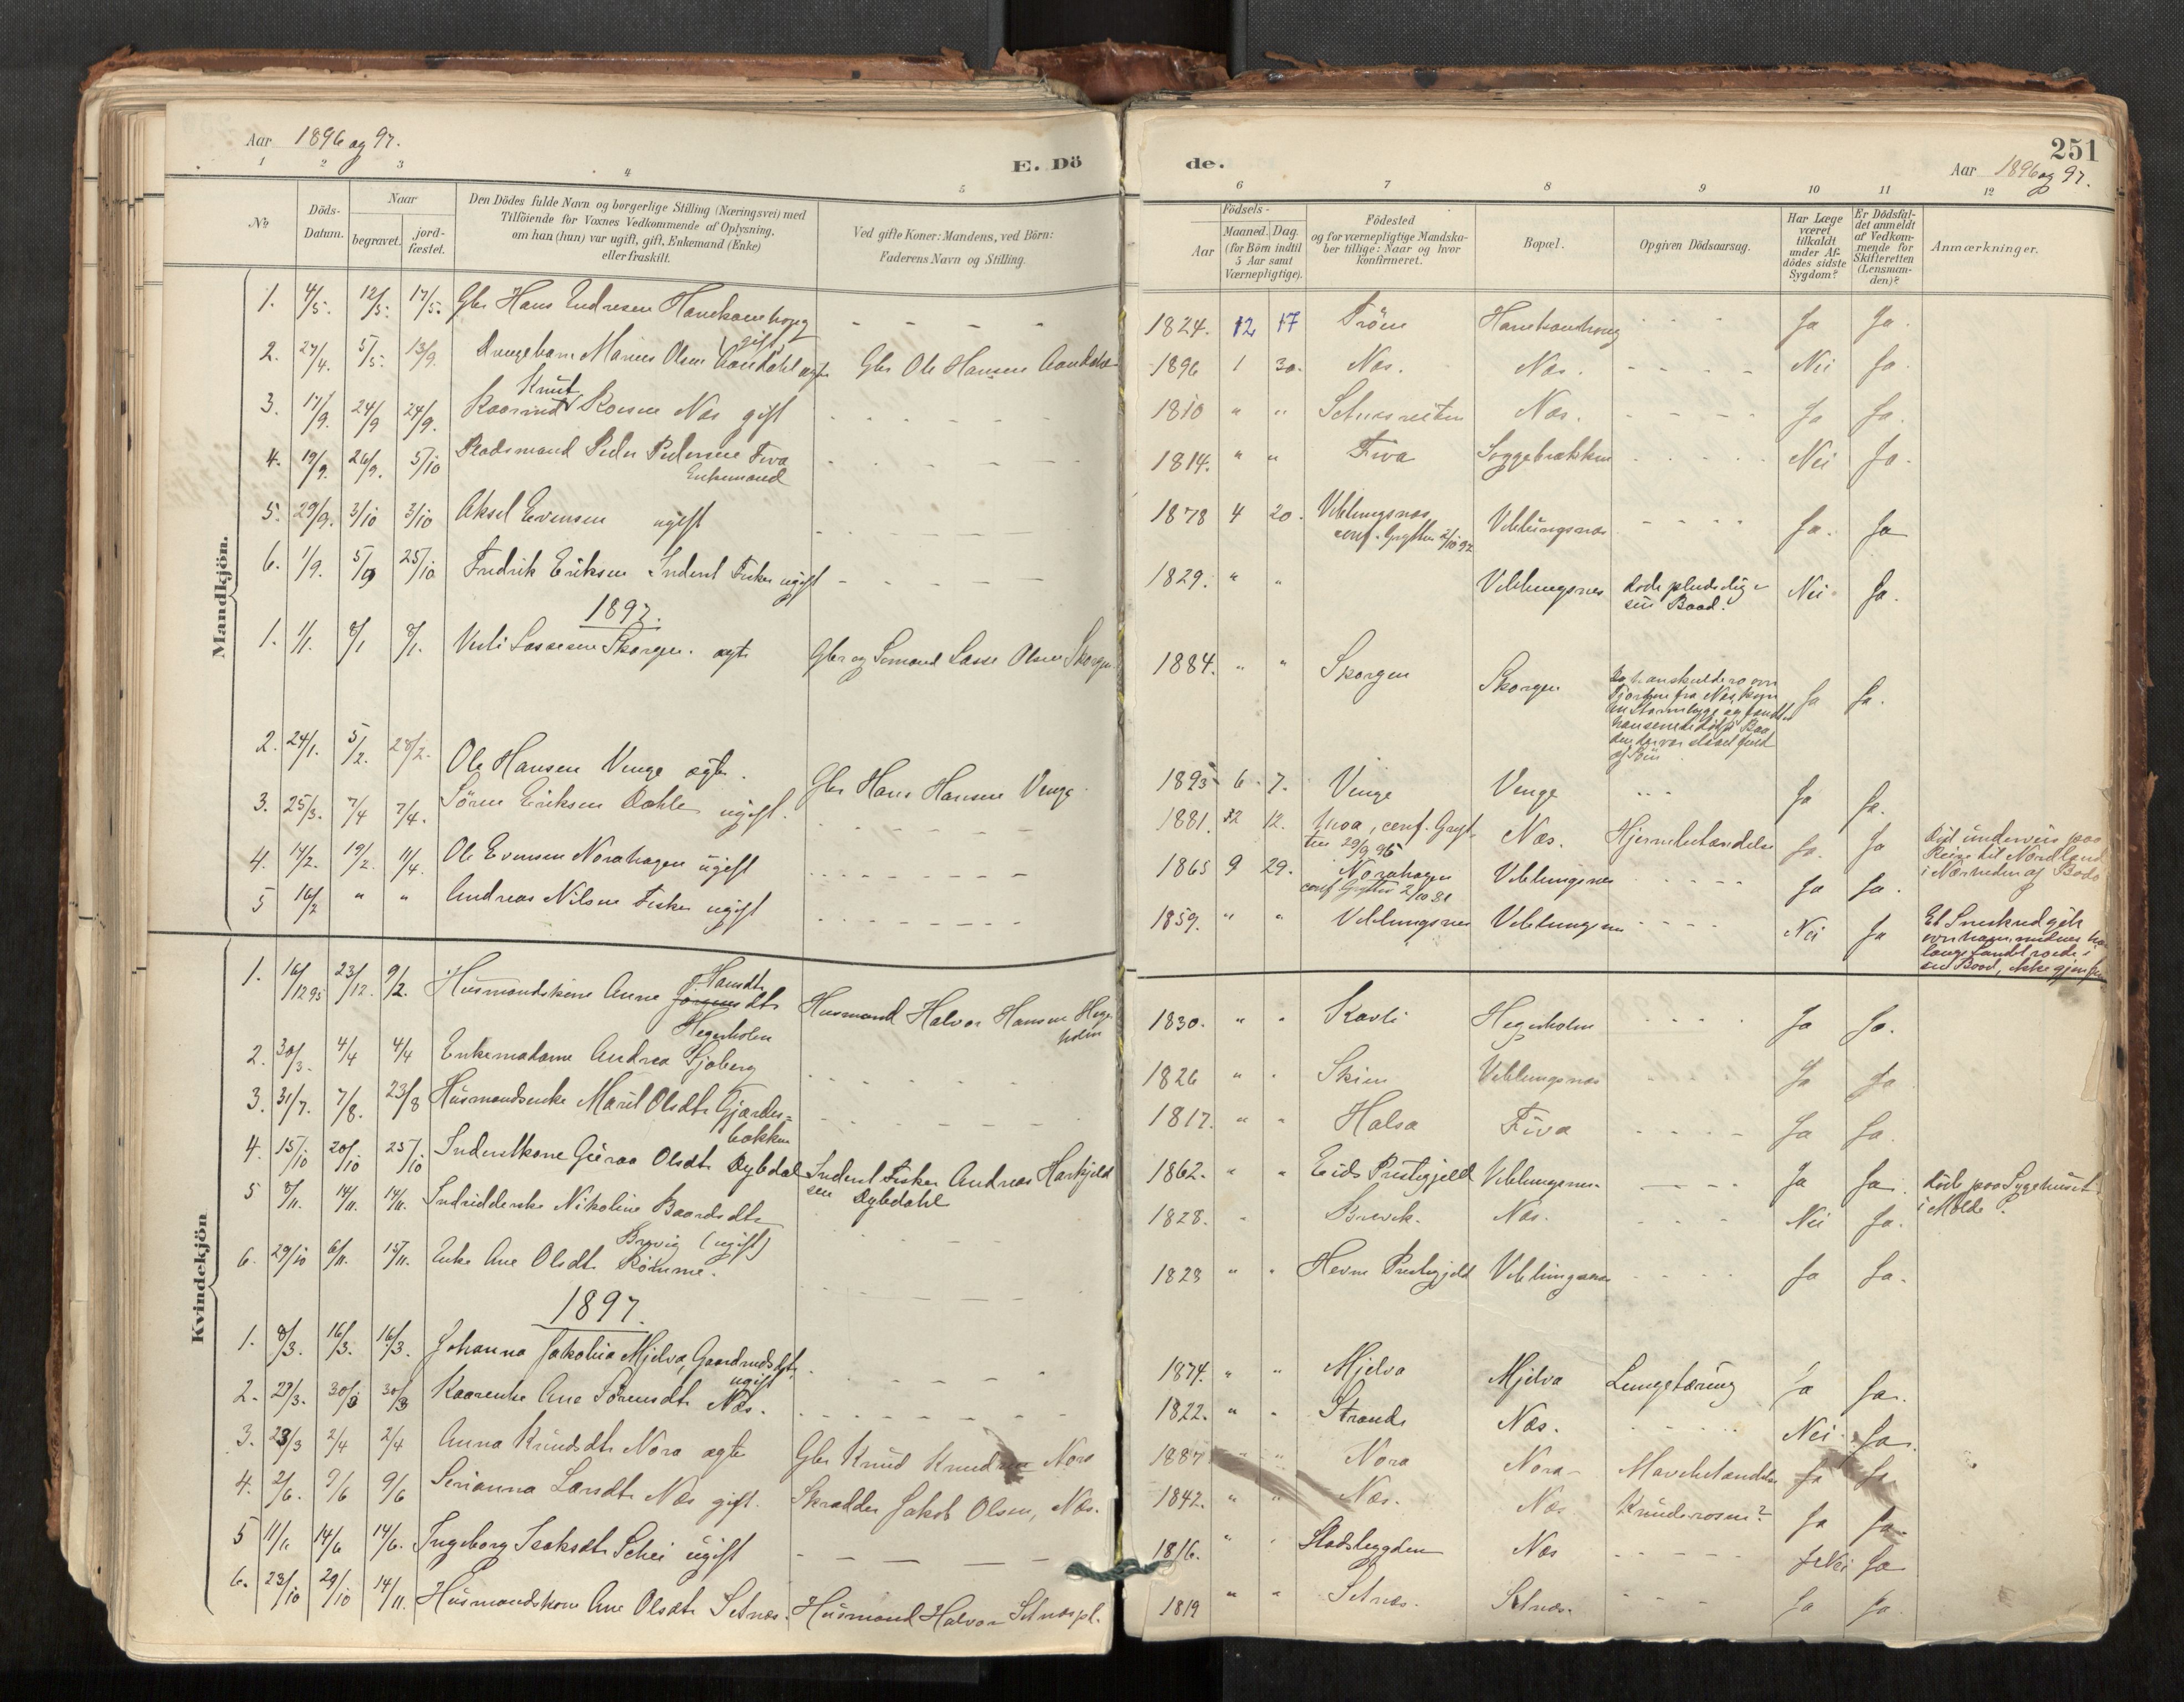 Aar 1896 og 97.
E. Dö
de.
251
Aar 1896 og 97.
1 2 3 4 5
6 7 8 9 10 11 12
No
Döds-Datum.
Naar
begravet.
jord-fæstet.
Den Dödes fulde Navn og borgerlige Stilling (Næringsvei) med
Tilföiende for Voxnes Vedkommende af Oplysning,
om han (hun) var ugift, gift, Enkemand (Enke)
eller fraskilt.
Ved gifte Koner: Mandens, ved Börn:
Faderens Navn og Stilling.
Födsels-
Aar
Maaned. Dag.
(for Börn indtil
5 Aar samt
Værnepligtige).
Födested
og for værnepligtige Mandska-
ber tillige: Naar og hvor
konfirmeret.
Bopæl.
Opgiven Dödsaarsag.
Har Læge
været
tilkaldt
under Af-
dödes sidste
Sygdom?
Er Dödsfal-
det anmeldt
af Vedkom-
mende for
Skifteretten
(Lensman-
den)?
Anmærkninger.
Mandkjön.
1. 4/5. 12/5. 17/5. Gbr Hans Endresen Hanekamhoug gift - - - - 1824. 12 17 Hanekamhoug - - - Ja Ja.
2. 27/4. 5/5. 13/9. Drengebarn Marius Olsen Aandahl ægte Gbr Ole Hansen Aandahl 1896 1 30. Næs. Næs. - - - - Nei Ja.
3. 17/9. 24/9 24/9. Knut Næs gift - - - - 1810 " " Setnæs Næs. - - - - Ja Ja.
4. 19/9. 26/9. 5/10 Pladsmand Peder Pedersen Fiva
Enkemand - - - - 1814. " " Fiva Soggebakken - - - - Nei Ja.
5. 29/9. 3/10 3/10 Aksel Evensen ugift - - - - 1878 4 20. Veblungsnæs
conf. Grytten 2/10 92 Veblungsnæs - - - - Ja. Ja
6. 1/9. 5/9 25/10 Fredrik Eriksen Inderst Fisker ugift - - - - 1829. " " Veblungsnes döde pludselig i
sin Baad. Nei Ja.
1897.
1. 1/1. 8/1 8/1. Lassesen Skorgen. ægte Gbr og Lassе Olsen Skorgen 1884. " " Skorgen Skorgen Ja Ja.
2. 24/1. 5/2. 28/2. Ole Hansen Venge ægte. Gbr Hans Hansen Venge 1895 6 7. Venge Venge Ja Ja.
3. 25/3. 7/4 7/4. Sören Eriksen Dahle ugift. - - - - 1881. 12 12. conf. Gryt-
ten 29/9 95 Næs. Hjernebetændelse Ja. Ja
4. 14/2. 19/2. 11/4. Ole Evensen Norahagen ugift - - - - 1865 9 29. Norahagen
conf. Grytten 2/10 81 Veblungsnes - - - - Ja Ja. Död underveis paa
Reise til Nordland
i Nærheden af Bodö
5 16/2 " " Andreas Nilsen Fisker ugift - - - - 1859. " " Veblungsnes Veblungsnes - - - - Nei Ja Et Sneskred gik
over ham
sin Baad, ikke
Kvindekjön
1. 16/12 95 23/12. 9/2. Husmandskone Anne Hansdtr
Hegerholm Husmand Halvor Hansen Heger
holm 1830. " " Kavli Hegerholm - - - - Ja Ja.
2. 30/3. 4/4 4/4 Enkemadame Andrea Sjöberg - - - - 1826 " " Veblungsnæs - - - Ja Ja
3. 31/7. 7/8. 23/8 Husmandsenke Marit Olsdtr Gjerdes-
bakken - - - - 1817. " " Halsa Fiva - - - - Ja Ja.
4. 15/10 20/10 25/10 Inderstkone Guroa Olsdtr Dybdal Inderst Fisker Andreas Harkjeld
sen Dybdahl 1862. " " Eids Prestegjeld Veblungsnes. - - - - Ja Ja. döde paa Sygehuset
i Molde.
5 8/11. 14/11. 14/11. Nikoline Baardsdtr
Brevig (ugift) - - - 1828. " Brevik. Næs. - - - Nei Ja.
6. 29/10 6/11. 15/11. Enke Ane Olsdtr Römme. - - - - 1823 " " Hevne Prestegjeld Veblungsnes - - - - Ja Ja.
1897.
1. 8/3. 16/3. 16/3. Johanna Jakobia Mjelva, Gaardmdsdtr,
ugift - - - - 1874. " " Mjelva Mjelva Lungetæring Ja Ja.
2. 23/3. 30/3 30/3 Kaarenke Ane Sörensdtr Næs. - - - - 1822. " " Strande Næs. - - - - Nei Ja.
3. 23/3 2/4 2/4 Anna Knudsdtr Nora ægte Gbr Knud Knudsen Nora 1887 " " Nora Nora Mavebetændelse Ja Ja
4. 2/6. 9/6 9/6 Serianna Larsdtr Næs gift. Skrædder Jakob Olsen, Næs. 1842. " " Næs. Næs. Knuderosen? Ja Ja.
5 11/6 14/6 14/6. Ingeborg Isaksdtr Schei ugift - - - - 1816. " " Stadsbygden Næs - - - - Nei Ja
6. 23/10 29/10 14/11. Husmandskone Ane Olsdtr Setnæs. Husmand Halvor Setnæspl. 1819 " " Setnæs. Setnæs. - - - Ja Ja.